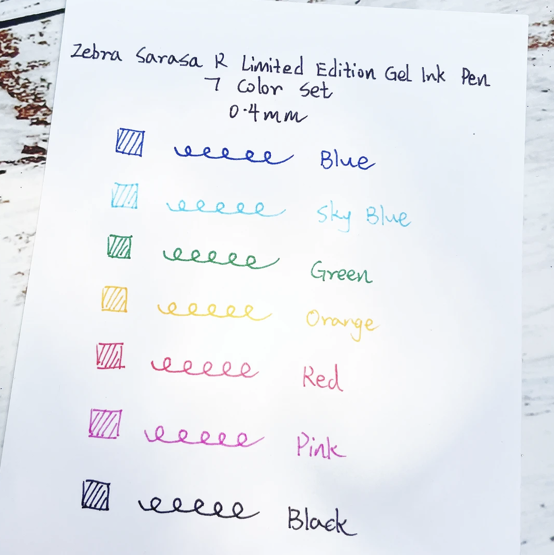 Zebra Sarasa R Limited Edition Gel Ink Pen
7 Color Set
0.4mm
Blue
Sky Blue
Green
Orange
Red
Pink
Black